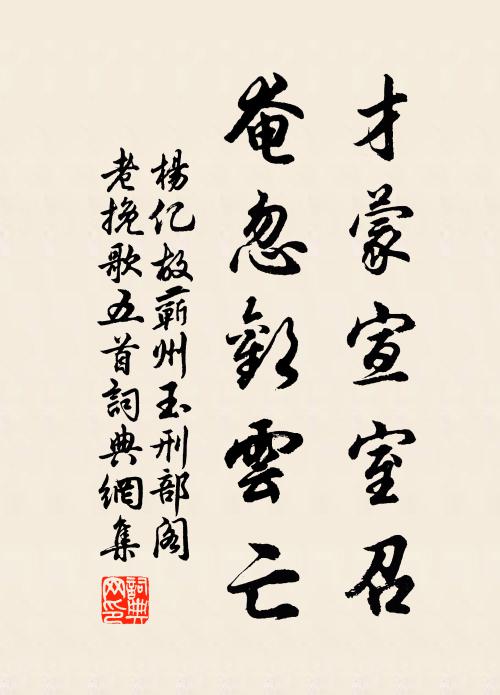 才蒙宣室召
奄忽歎雲亡
楊億故蘄州玉刑部閣
老挽歌五首詞典網集
詞典網印